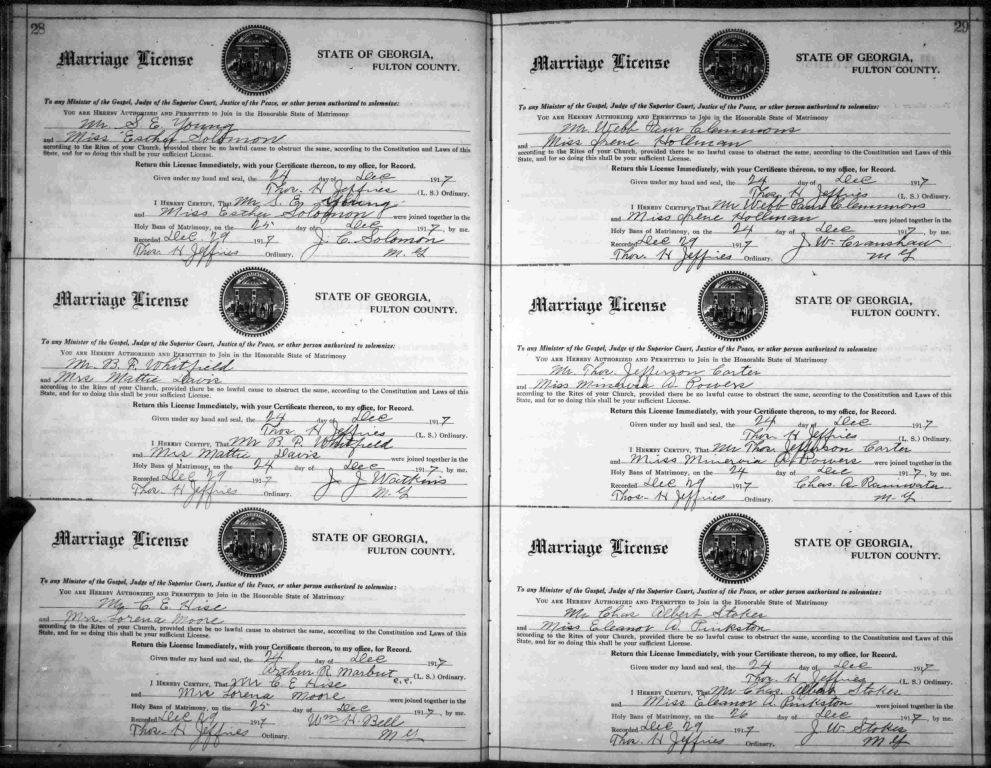 28
Marriage License
STATE OF GEORGIA,
FULTON COUNTY.
To any Minister of the Gospel, Judge of the Superior Court, Justice of the Peace, or other person authorized to solemnize:
YOU ARE HEREBY AUTHORIZED AND PERMITTED to Join in the Honorable State of Matrimony
Mr. S. E. Young
and Miss Esther Solomon
according to the Rites of your Church, provided there be no lawful cause to obstruct the same, according to the Constitution and Laws of this
State, and for so doing this shall be your sufficient License.
Return this License Immediately, with your Certificate thereon, to my office, for Record.
Given under my hand and seal, the 24 day of Dec 1917
Thos. H Jeffries (L. S.) Ordinary.
I HEREBY CERTIFY, That Mr. S. E. Young
and Miss Esther Solomon were joined together in the
Holy Bans of Matrimony, on the 25 day of Dec 1917, by me.
Recorded Dec 29 1917 J. C. Solomon
Thos. H Jeffries Ordinary. M. G
Marriage License
STATE OF GEORGIA,
FULTON COUNTY.
To any Minister of the Gospel, Judge of the Superior Court, Justice of the Peace, or other person authorized to solemnize:
YOU ARE HEREBY AUTHORIZED AND PERMITTED to Join in the Honorable State of Matrimony
Mr. B. R. Whitfield
and Mrs Mattie Davis
according to the Rites of your Church, provided there be no lawful cause to obstruct the same, according to the Constitution and Laws of this
State, and for so doing this shall be your sufficient License.
Return this License Immediately, with your Certificate thereon, to my office, for Record.
Given under my hand and seal, the 24 day of Dec 1917
Thos. H Jeffries (L. S.) Ordinary.
I HEREBY CERTIFY, That Mr B. R. Whitfield
and Mrs Mattie Davis were joined together in the
Holy Bans of Matrimony, on the 24 day of Dec 1917, by me.
Recorded Dec 29 1917 J. J Watkins
Thos. H Jeffries Ordinary. M. G
Marriage License
STATE OF GEORGIA,
FULTON COUNTY.
To any Minister of the Gospel, Judge of the Superior Court, Justice of the Peace, or other person authorized to solemnize:
YOU ARE HEREBY AUTHORIZED AND PERMITTED to Join in the Honorable State of Matrimony
Mr C. E. Hise
and Mrs. Lorena Moore
according to the Rites of your Church, provided there be no lawful cause to obstruct the same, according to the Constitution and Laws of this
State, and for so doing this shall be your sufficient License.
Return this License Immediately, with your Certificate thereon, to my office, for Record.
Given under my hand and seal, the 24 day of Dec 1917
Arthur R. Marbut (L. S.) Ordinary.
I HEREBY CERTIFY, That Mr C E Hise
and Mrs Lorena Moore were joined together in the
Holy Bans of Matrimony, on the 25 day of Dec 1917, by me.
Recorded Dec 29 1917 Wm H. Bell
Thos. H Jeffries Ordinary. M G
29
Marriage License
STATE OF GEORGIA,
FULTON COUNTY.
To any Minister of the Gospel, Judge of the Superior Court, Justice of the Peace, or other person authorized to solemnize:
YOU ARE HEREBY AUTHORIZED AND PERMITTED to Join in the Honorable State of Matrimony
Mr. Webb Clemmons
and Miss Irene Hollman
according to the Rites of your Church, provided there be no lawful cause to obstruct the same, according to the Constitution and Laws of this
State, and for so doing this shall be your sufficient License.
Return this License Immediately, with your Certificate thereon, to my office, for Record.
Given under my hand and seal, the 24 day of Dec 1917
Thos. H. Jeffries (L. S.) Ordinary.
I HEREBY CERTIFY, That Mr Webb Clemmons
and Miss Irene Hollman were joined together in the
Holy Bans of Matrimony, on the 24 day of Dec 1917, by me.
Recorded Dec 29 1917 J. W. Cranshaw
Thos. H Jeffries Ordinary. M G
Marriage License
STATE OF GEORGIA,
FULTON COUNTY.
To any Minister of the Gospel, Judge of the Superior Court, Justice of the Peace, or other person authorized to solemnize:
YOU ARE HEREBY AUTHORIZED AND PERMITTED to Join in the Honorable State of Matrimony
Mr. Thos. Jefferson Carter
and Miss Minervia A. Powers
according to the Rites of your Church, provided there be no lawful cause to obstruct the same, according to the Constitution and Laws of this
State, and for so doing this shall be your sufficient License.
Return this License Immediately, with your Certificate thereon, to my office, for Record.
Given under my hand and seal, the 24 day of Dec 1917
Thos. H Jeffries (L. S.) Ordinary.
I HEREBY CERTIFY, That Mr Thos. Jefferson Carter
and Miss Minervia A. Powers were joined together in the
Holy Bans of Matrimony, on the 24 day of Dec 1917, by me.
Recorded Dec 29 1917 Chas. A.
Thos. H Jeffries Ordinary. M. G
Marriage License
STATE OF GEORGIA,
FULTON COUNTY.
To any Minister of the Gospel, Judge of the Superior Court, Justice of the Peace, or other person authorized to solemnize:
YOU ARE HEREBY AUTHORIZED AND PERMITTED to Join in the Honorable State of Matrimony
Mr Chas Albert Stokes
and Miss Eleanor A. Pinkston
according to the Rites of your Church, provided there be no lawful cause to obstruct the same, according to the Constitution and Laws of this
State, and for so doing this shall be your sufficient License.
Return this License Immediately, with your Certificate thereon, to my office, for Record.
Given under my hand and seal, the 24 day of Dec 1917
Thos. H Jeffries (L. S.) Ordinary.
I HEREBY CERTIFY, That Mr Chas Albert Stokes
and Miss Eleanor A. Pinkston were joined together in the
Holy Bans of Matrimony, on the 26 day of Dec 1917, by me.
Recorded Dec 29 1917 J. W. Stokes
Thos. H Jeffries Ordinary. M G